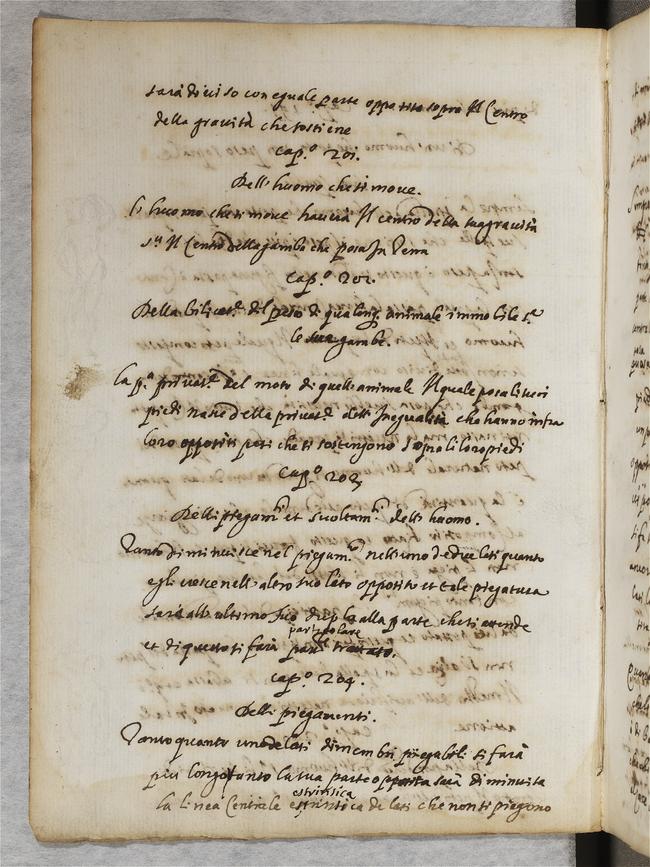 sarà diviso con eguale parte opposite sopra Il Centro
della gravità che sostiene
cap.º 201.
Dell' huomo che si move.
l' huomo che si move haverà Il centro della sua gravità
s.ª Il Centro della gamba che posa In Terra
cap.º 202.
Della bilicat.ᵉ del peso di qualonq. animale immobile s.ª
le sue gambe.
la p.ª privat.ᵉ del moto di quell' animale Il quale posa li suoi
piedi nasce della privat.ᵉ dell' Inequalità che hanno infra
loro oppositi pesi che si sostengono sopra li loro piedi
cap.º 203
Delli piegam.ᵗⁱ et svoltam.ᵗⁱ dell' huomo.
Tanto diminuisce nel piegam.ᵗᵒ nell'uno de due lati quanto
egli cresce nell' altro suo lato opposito et tale piegatura
sarà all' ultimo sub dupla alla parte che si stende
particolare
et di questo si farà trattato.
cap.º 204.
Delli piegamenti.
Tanto quanto uno de lati di membri piegabili si farà
più longo tanto la sua parte opposita sarà diminuita
estrinsica
la linea Centrale de lati che non si piegono